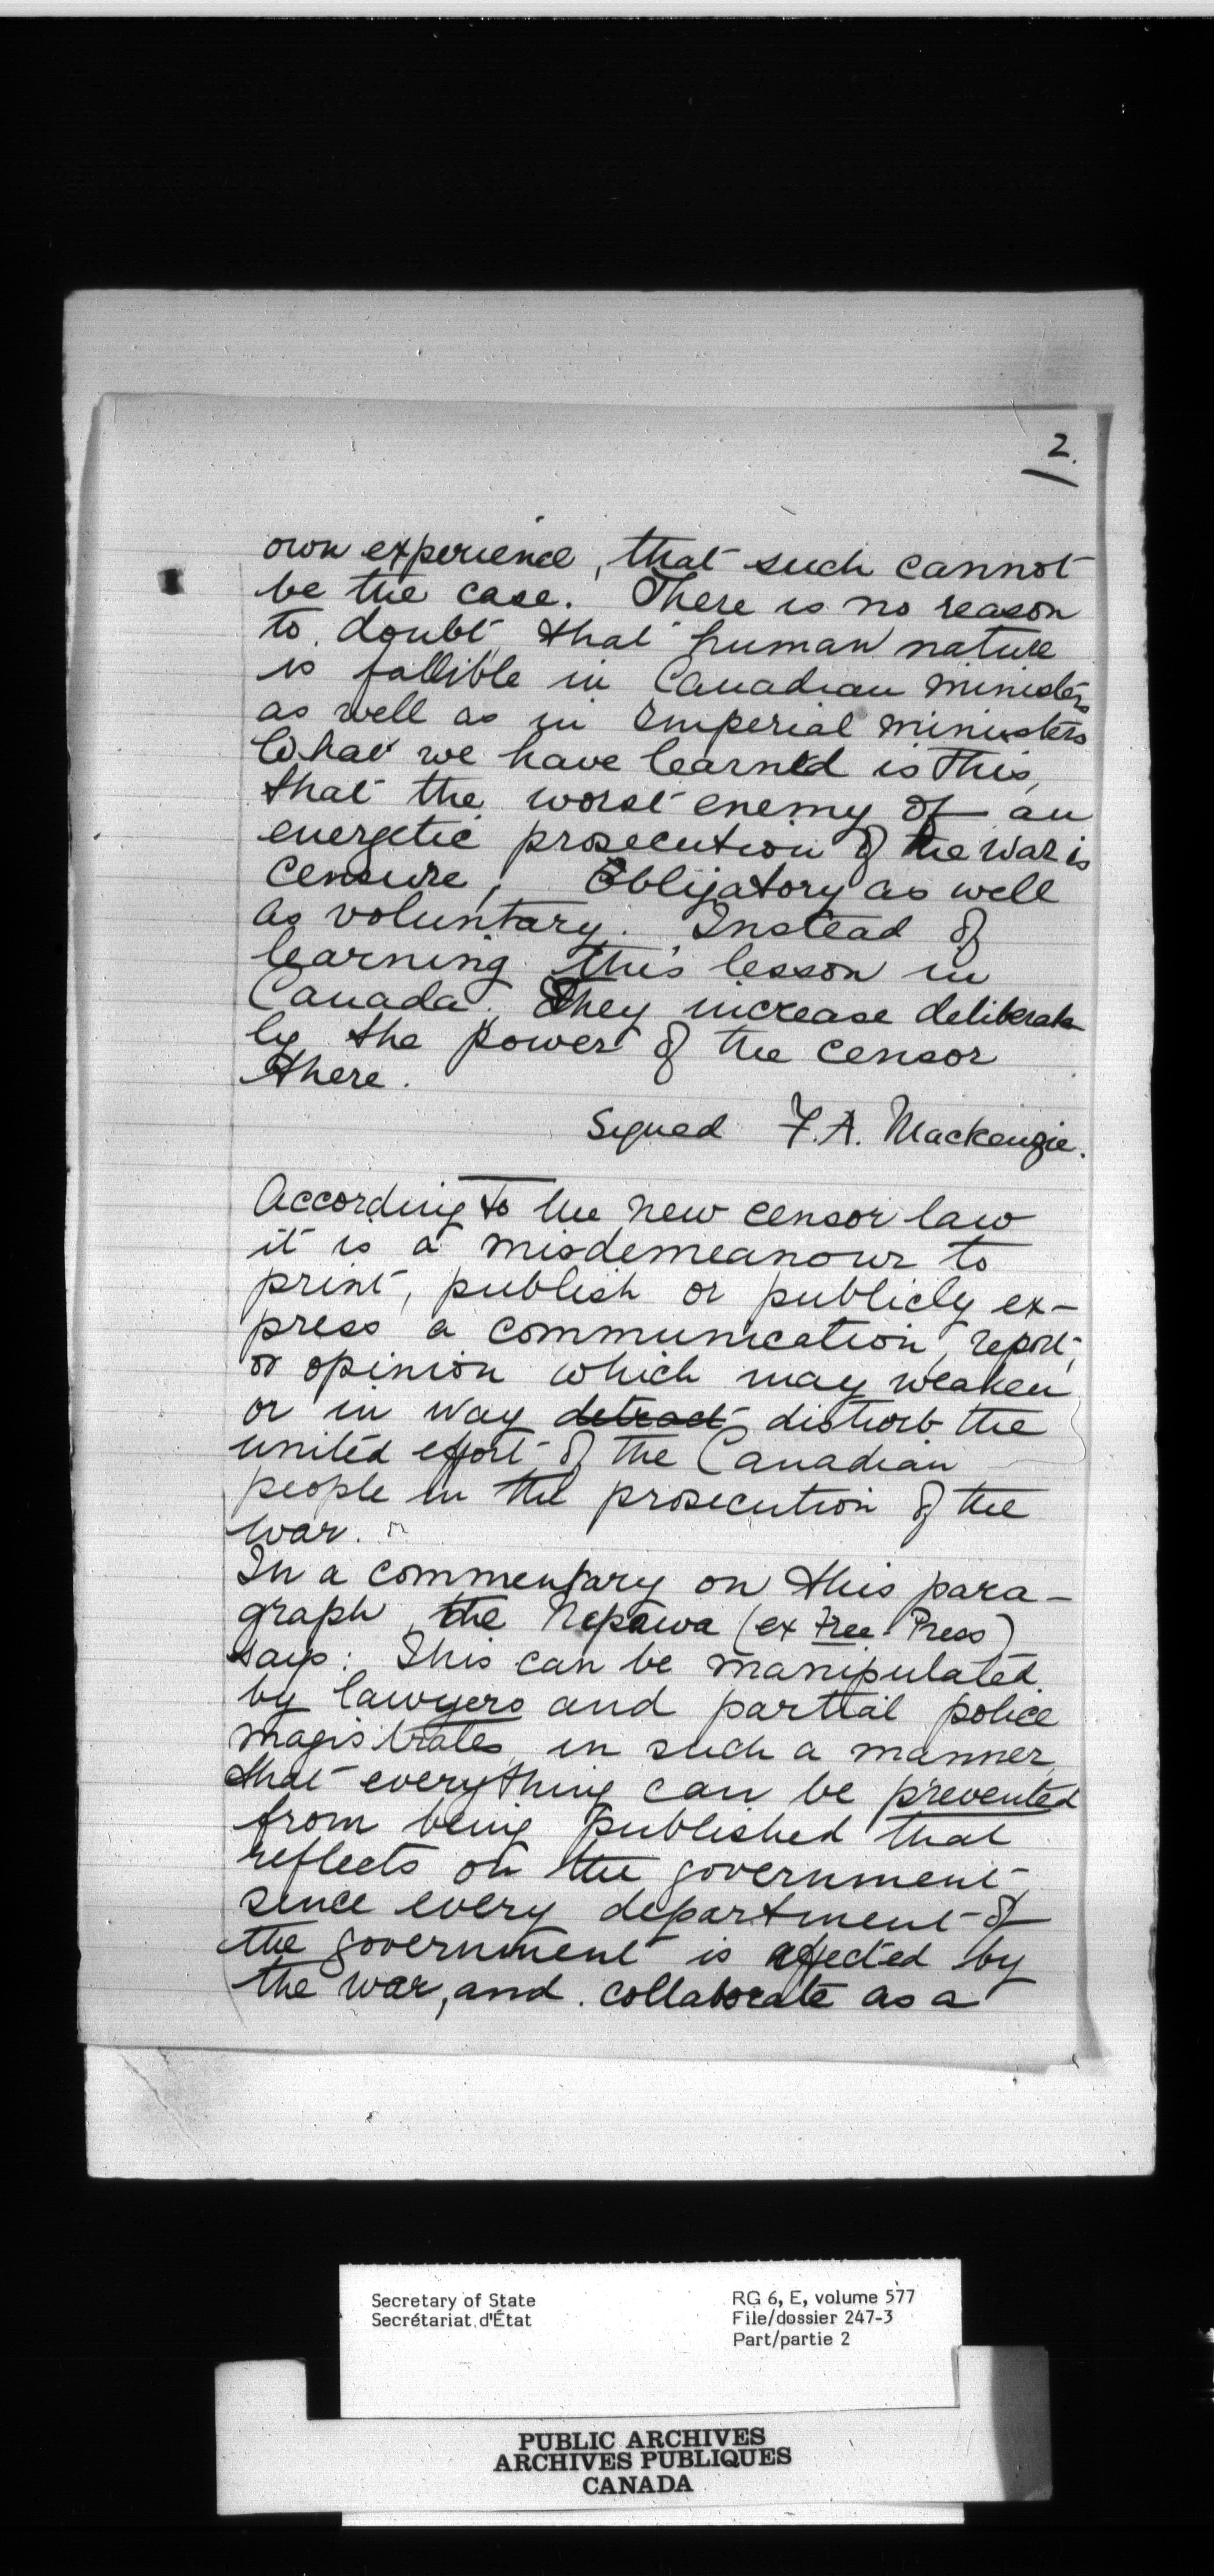 2.
own experience, that such cannot
be the case. There is no reason
to doubt that human nature
is fallible in Canadian ministers
as well as in Imperial ministers
What we have learned is this,
that the worst enemy of an
energetic prosecution of the war is
censure, Obligatory as well
as voluntary. Instead of
learning this lesson in
Canada, They increase deliberate
ly the power of the censor
there.
Signed F.A. Mackenzie.
According to the new censor law
it is a misdemeanour to
print, publish or publicly ex-
press a communication, report,
or opinion which may weaken
or in way detract disturb the
united effort of the Canadian
people in the prosecution of the
war.
In a commentary on this para-
graph, the Nepawa (ex Free Press)
says: This can be manipulated
by lawyers and partial police
magistrates in such a manner
that everything can be prevented
from being published that
reflects on the government,
since every department of
the government is affected by
the war, and collaborate as a
Secretary of State
Secrétariat d'État
RG 6, E, volume 577
File/dossier 247-3
Part/partie 2
PUBLIC ARCHIVES
ARCHIVES PUBLIQUES
CANADA